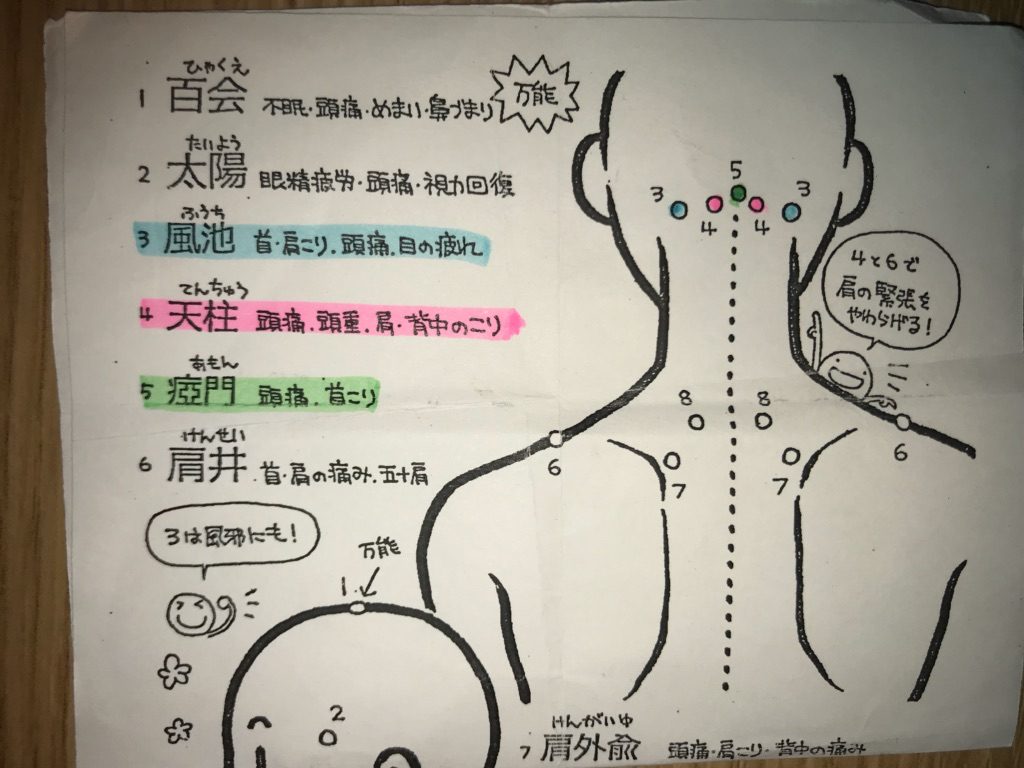 ひゃくえ
1 百会 不眠・頭痛・めまい・鼻づまり
万能
たいよう
2 太陽 眼精疲労・頭痛・視力回復
ふうち
3 風池 首・肩こり.頭痛.目の疲れ
てんちゅう
4 天柱 頭痛.頭重.肩・背中のこり
あもん
5 瘂門 頭痛.首こり
けんせい
6 肩井 首・肩の痛み.五十肩
3は風邪にも!
万能
1
2
5
3 3
4 4
4と6で
肩の緊張を
やわらげる!
8 8
6 6
7 7
けんがいゆ
7 肩外兪 頭痛・肩こり・背中の痛み